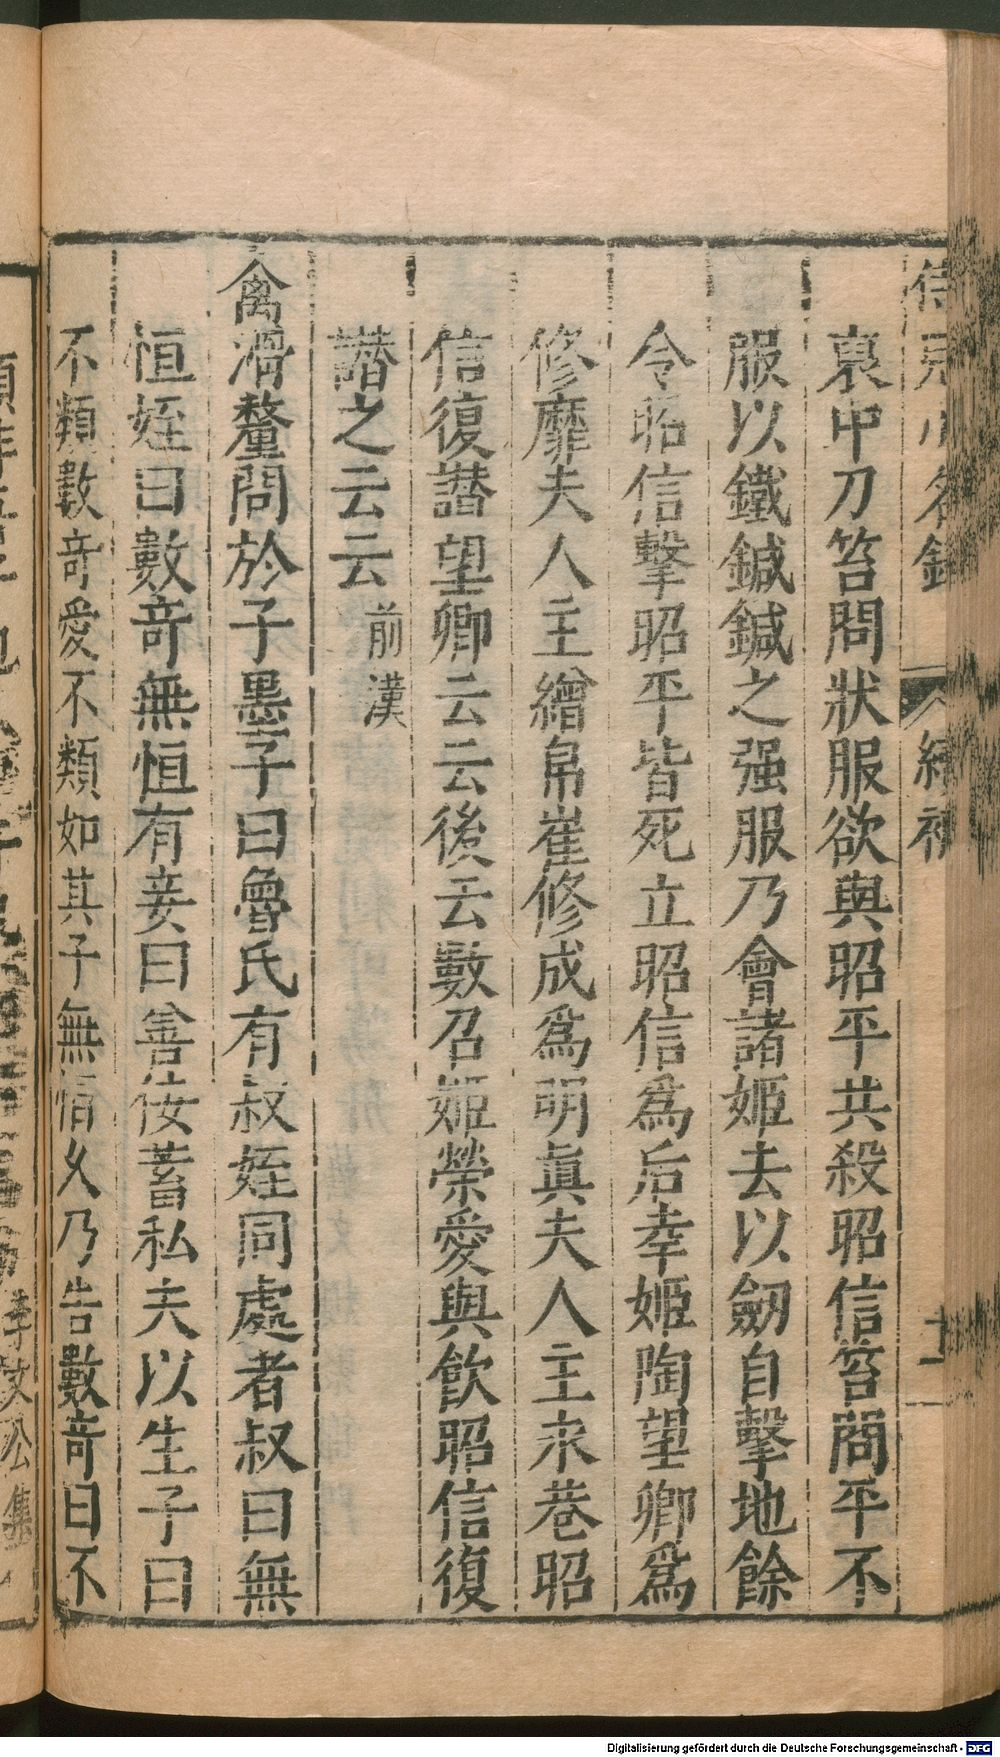 侍兒小名錄 續補 十一
裏中刀笞問狀服欲與昭平共殺昭信笞問平不
服以鐵鍼鍼之强服乃會諸姬去以劒自擊地餘
令昭信擊昭平皆死立昭信爲后幸姬陶望卿爲
修靡夫人主繒帛崔修成爲明眞夫人主永巷昭
信復譖望卿云云後云數召姬榮愛與飮昭信復
譖之云云 前漢
禽滑釐問於子墨子曰魯氏有叔姪同處者叔曰無
恒姪曰數奇無恒有妾曰善佞蓄私夫以生子曰
不類數奇愛不類如其子無恒久乃告數奇曰不
李文公集
Digitalisierung gefördert durch die Deutsche Forschungsgemeinschaft - DFG